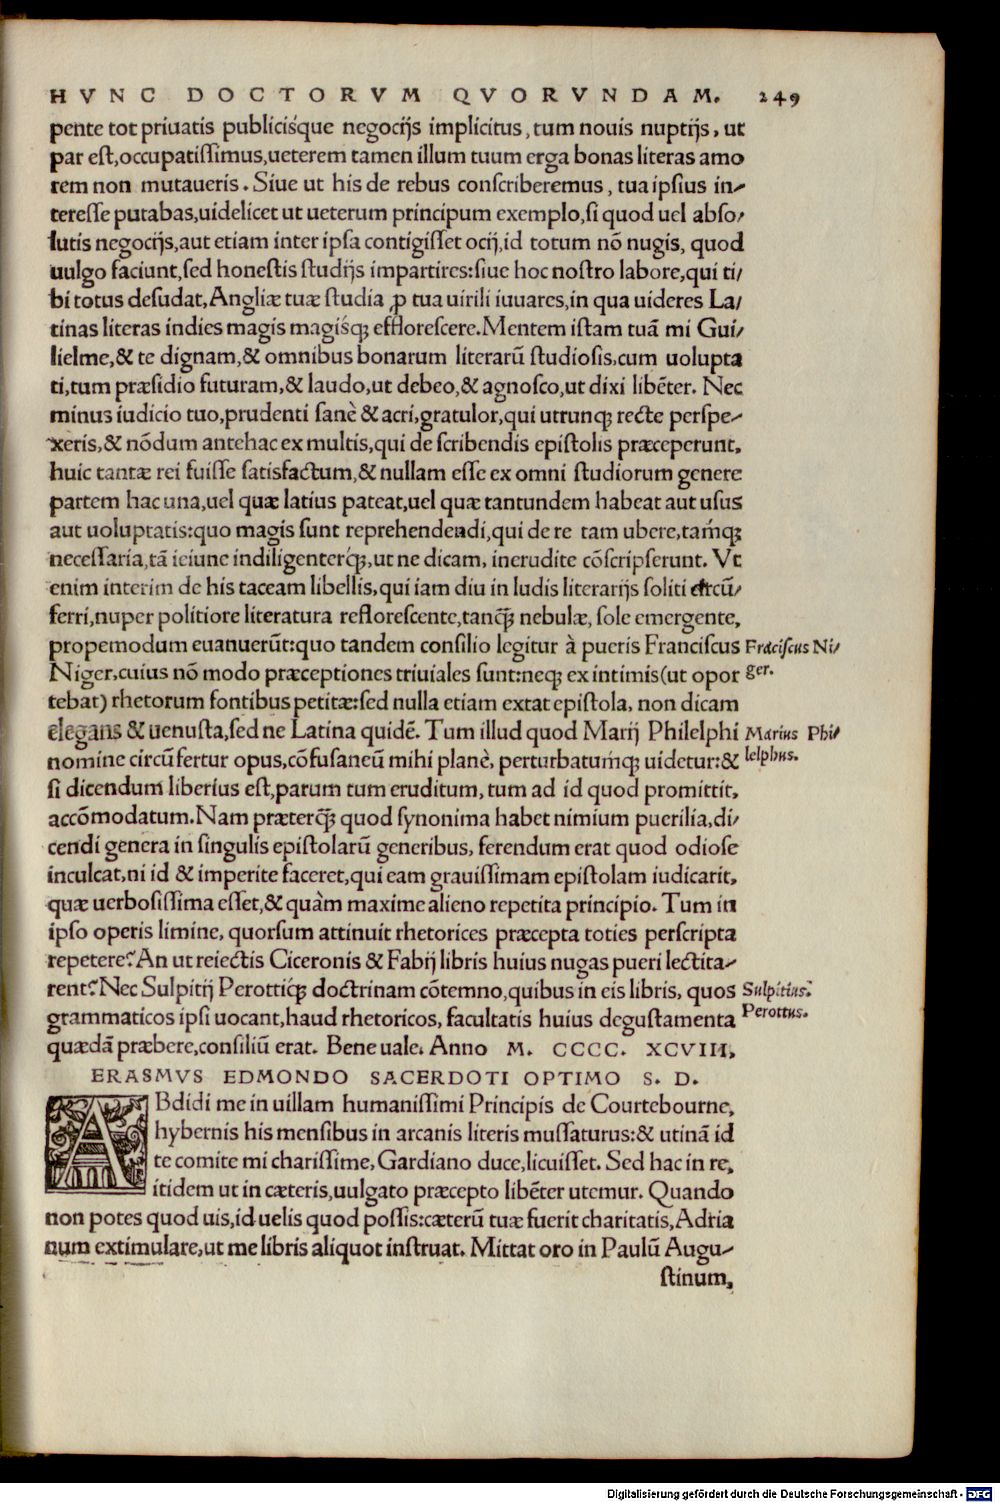 HVNC DOCTORVM QVORVNDAM. 249
pente tot priuatis publicisq́ue negocijs implicitus, tum nouis nuptijs, ut
par est, occupatissimus, ueterem tamen illum tuum erga bonas literas amo
rem non mutaueris. Siue ut his de rebus conscriberemus, tua ipsius in-
teresse putabas, uidelicet ut ueterum principum exemplo, si quod uel abso/
lutis negocijs, aut etiam inter ipsa contigisset ocij, id totum nõ nugis, quod
uulgo faciunt, sed honestis studijs impartires: siue hoc nostro labore, qui ti/
bi totus desudat, Angliæ tuæ studia ꝓ tua uirili iuuares, in qua uideres La/
tinas literas indies magis magisq́ꝫ efflorescere. Mentem istam tuã mi Gui/
lielme, & te dignam, & omnibus bonarum literarũ studiosis, cum uolupta
ti, tum præsidio futuram, & laudo, ut debeo, & agnosco, ut dixi libẽter. Nec
minus iudicio tuo, prudenti sanè & acri, gratulor, qui utrunqꝫ recte perspe-
xeris, & nõdum antehac ex multis, qui de scribendis epistolis præceperunt,
huic tantæ rei fuisse satisfactum, & nullam esse ex omni studiorum genere
partem hac una, uel quæ latius pateat, uel quæ tantundem habeat aut usus
aut uoluptatis: quo magis sunt reprehendendi, qui de re tam ubere, taḿqꝫ
necessaria, tã ieiune indiligenterq́ꝫ, ut ne dicam, inerudite cõscripserunt. Vt
enim interim de his taceam libellis, qui iam diu in ludis literarijs soliti circũ/
ferri, nuper politiore literatura reflorescente, tanq̃ꝫ nebulæ, sole emergente,
propemodum euanuerũt: quo tandem consilio legitur à pueris Franciscus
Frãciscus Ni/
Niger, cuius nõ modo præceptiones triuiales sunt: neqꝫ ex intimis (ut opor
ger.
tebat) rhetorum fontibus petitæ: sed nulla etiam extat epistola, non dicam
elegans & uenusta, sed ne Latina quidẽ. Tum illud quod Marij Philelphi
Marius Phi/
nomine circũfertur opus, cõfusaneũ mihi planè, perturbatuḿqꝫ uidetur: &
lelphus.
si dicendum liberius est, parum tum eruditum, tum ad id quod promittit,
accõmodatum. Nam præterq̃ꝫ quod synonima habet nimium puerilia, di/
cendi genera in singulis epistolarũ generibus, ferendum erat quod odiose
inculcat, ni id & imperite faceret, qui eam grauissimam epistolam iudicarit,
quæ uerbosissima esset, & quàm maxime alieno repetita principio. Tum in
ipso operis limine, quorsum attinuit rhetorices præcepta toties perscripta
repetere? An ut reiectis Ciceronis & Fabij libris huius nugas pueri lectita-
rent? Nec Sulpitij Perottiq́ꝫ doctrinam cõtemno, quibus in eis libris, quos
Sulpitius.
grammaticos ipsi uocant, haud rhetoricos, facultatis huius degustamenta
Perottus.
quædã præbere, consiliũ erat. Bene uale. Anno M. CCCC. XCVIII.
ERASMVS EDMONDO SACERDOTI OPTIMO S. D.
ABdidi me in uillam humanissimi Principis de Courtebourne,
hybernis his mensibus in arcanis literis mussaturus: & utinã id
te comite mi charissime, Gardiano duce, licuisset. Sed hac in re,
itidem ut in cæteris, uulgato præcepto libẽter utemur. Quando
non potes quod uis, id uelis quod possis: cæterũ tuæ fuerit charitatis, Adria
num extimulare, ut me libris aliquot instruat. Mittat oro in Paulũ Augu-
stinum,
Digitalisierung gefördert durch die Deutsche Forschungsgemeinschaft - DFG